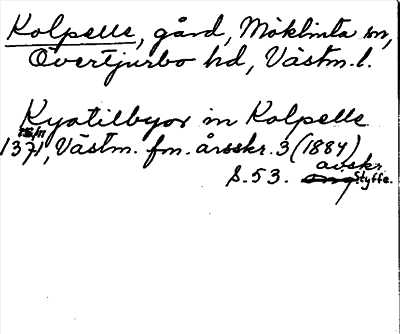 Kolpelle, gård, Möklinta sn,
Övertjurbo hd, Västm. l.
Kyætilbyor in Kolpelle
15/11
1371, Västm. fm. årsskr. 3 (1884)
avskr.
S. 53. Styffe.